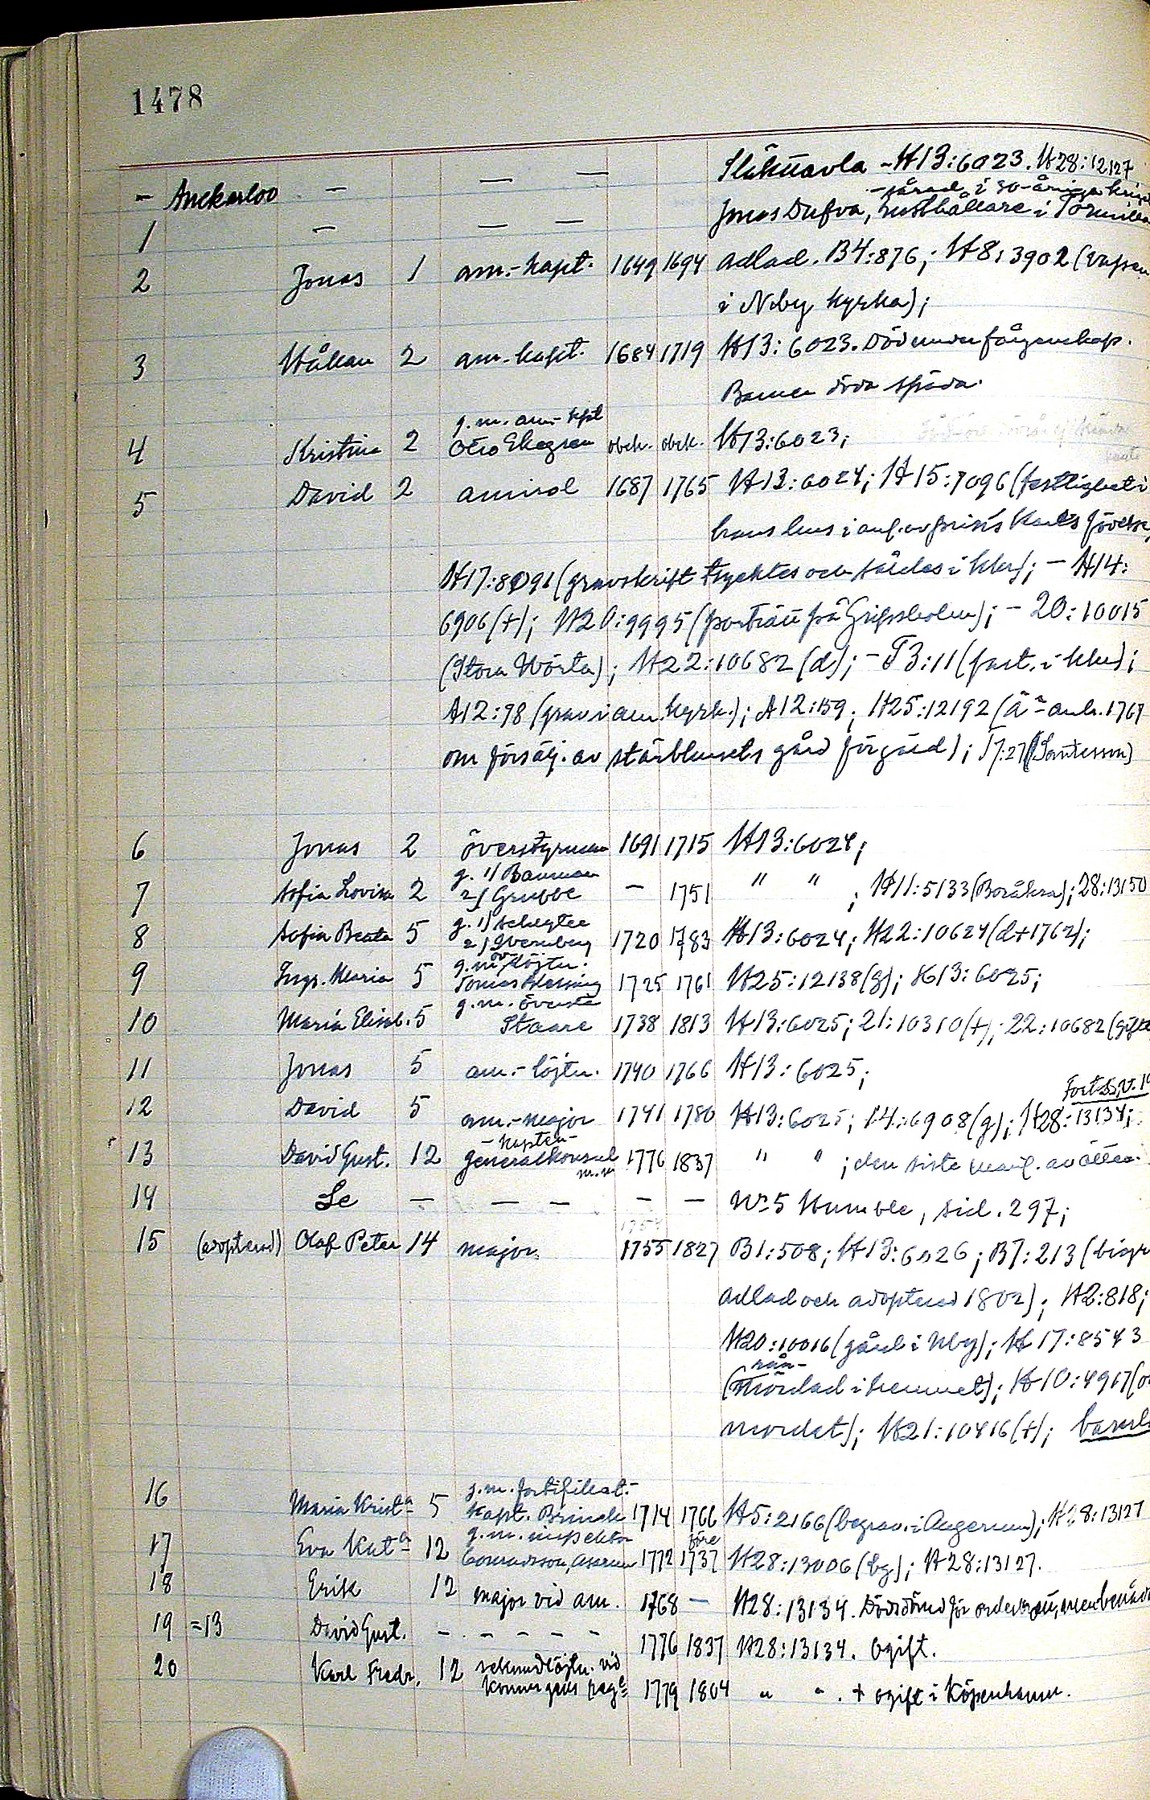 1478
- Anckarloo - - - Släkttavla - H13:6023. H28:12127
1 - - - Jonas Dufva, rusthållare i
2 Jonas 1 am.-kapt. 1649 1694 adlad. B4:876; H8:3902 (vapen
i Nby kyrka);
3 Håkan 2 am.-kapt. 1684 1719 H13:6023. Död under fångenskap.
Barnen döda späda.
g.m. am.-kpt
4 Kristina 2 Otto Ekegren obek. obek. H13:6023;
5 David 2 amiral 1687 1765 H13:6024; H15:7096 (festlighet i
hans hus i anl. av prins Karls födelse,
H17:8091 (gravskrift trycktes och såldes i Kkr); - H14:
6906 (+); H20:9995 (porträtt på Gripsholm); - 20:10015
(Stora Vörta); H22:10682 (d); - T3:11 (fast. i Kkr);
A12:78 (grav i am. kyrk.); A12:159; H25:12192 (Ä - ank. 1767
om försälj. av stärbhusets gård för gäld); T7:27 (Santesson)
6 Jonas 2 överstyrman 1691 1715 H13:6024;
g. 1) Bauman
7 Sofia Lovisa 2 2) Grubbe - 1751 " " ; H11:5133 (Boråkra); 28:13150
g. 1)
8 Sofia Beata 5 2) 1720 1783 H13:6024; H22:10624 (d + 1762);
g.m. löjtn.
9 Ingr. Maria 5 Tomas 1725 1761 H25:12138 (g); H13:6025;
g.m. överste
10 Maria Elisab. 5 Staare 1738 1813 H13:6025; 21:10310 (+); 22:10682 (gifte
11 Jonas 5 am.-löjtn. 1740 1766 H13:6025;
12 David 5 am.-major 1741 1780 H13:6025; 14:6908 (g); H28:13134;
-kapten-
13 David Gust. 12 generalkonsul m.m. 1776 1837 " " ; den siste manl. av ätten.
14 Se - - - - - Nr 5 Humble, sid. 297;
15 (adopterad) Olof Peter 14 major 1755 1827 B1:508; H13:6026; B7:213 (biogr
adlad och adopterad 1802); H2:818;
H20:10016 (gård i Nby); H17:8543
(rånmördad i hemmet); H10:4967 (om
mordet); H21:10416 (+);
g.m. fortifikat.-
16 Maria Krista 5 kapt. Brinck 1714 1766 H5:2166 (begrav. i Augerum); H28:13127
g.m. inspektor före
17 Eva Kata 12 Conradsson, Asarum 1772 1737 H28:13006 (bg); H28:13127.
18 Erik 12 major vid am. 1768 - H28:13134. Dödsdömd för
19 =13 David Gust. - - - - - 1776 1837 H28:13134. Ogift.
20 Karl Fredr. 12 sekundlöjtn. vid
1779 1804 " " . + ogift i Köpenhamn.